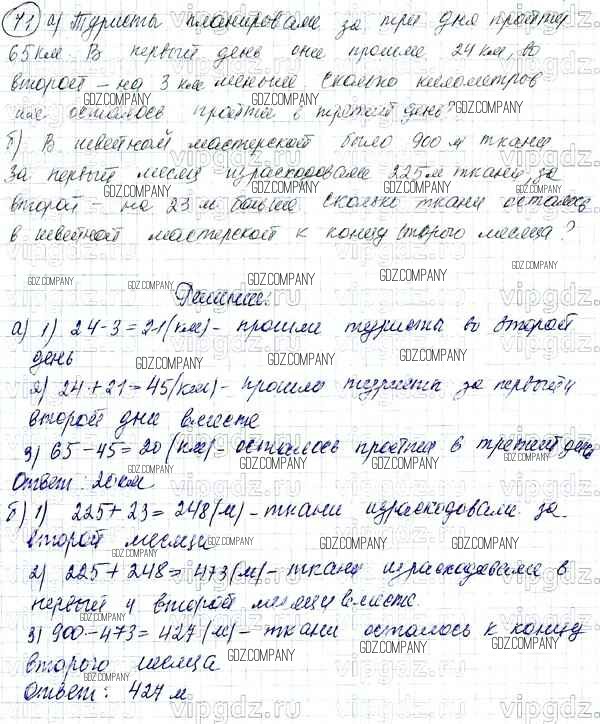 71 а) Туристы планировали за три дня пройти
65 км. В первый день они прошли 24 км, во
второй – на 3 км меньше. Сколько километров
им осталось пройти в третий день?
б) В швейной мастерской было 900 м ткани.
За первый месяц израсходовали 225 м ткани, за
второй – на 23 м больше. Сколько ткани осталось
в швейной мастерской к концу второго месяца?
Решение:
а) 1) 24-3=21(км) – прошли туристы во второй
день
2) 24+21=45(км) – прошли туристы за первый и
второй дни вместе
3) 65-45=20 (км) – осталось пройти в третий день
Ответ: 20 км
б) 1) 225+23=248(м) – ткани израсходовали за
второй месяц
2) 225+248=473(м) – ткани израсходовали в
первый и второй месяцы вместе.
3) 900-473=427(м) – ткани осталось к концу
второго месяца
Ответ: 427 м